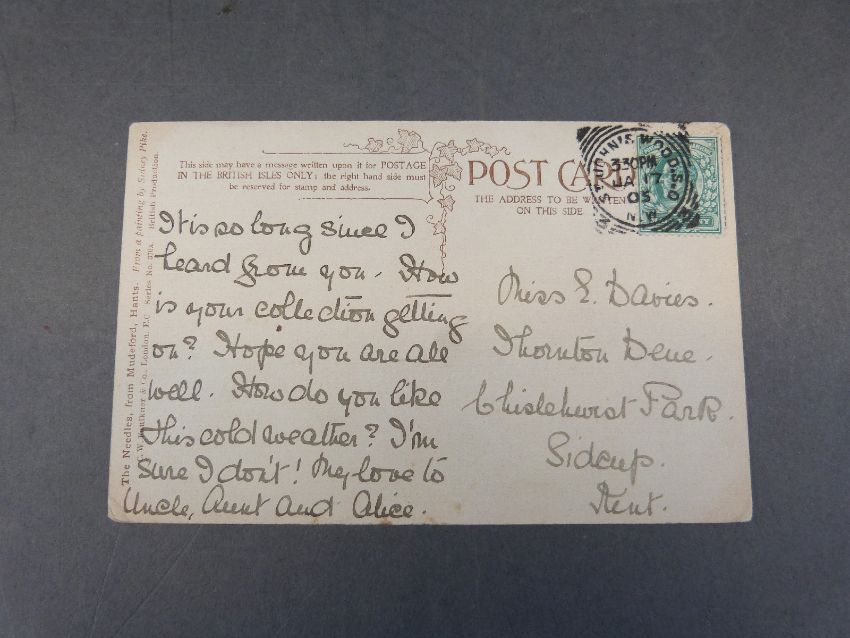 This side may have a message written upon it for POSTAGE
IN THE BRITISH ISLES ONLY: the right hand side must
be reserved for stamp and address.
POST CARD
THE ADDRESS TO BE WRITTEN
ON THIS SIDE
ST. JOHN'S WOOD S.O
3.30 PM
JA 17
03
N.W
It is so long since I
heard from you. How
is your collection getting
on? Hope you are all
well. How do you like
this cold weather? I'm
sure I don't! My love to
Uncle, Aunt and Alice.
Miss E. Davies.
Thornton Dene.
Chislehurst Park.
Sidcup.
Kent.
The Needles, from Mudeford, Hants. From a painting by Sidney Pike.
C. W. Faulkner & Co., London, E.C. Series No. British Production.